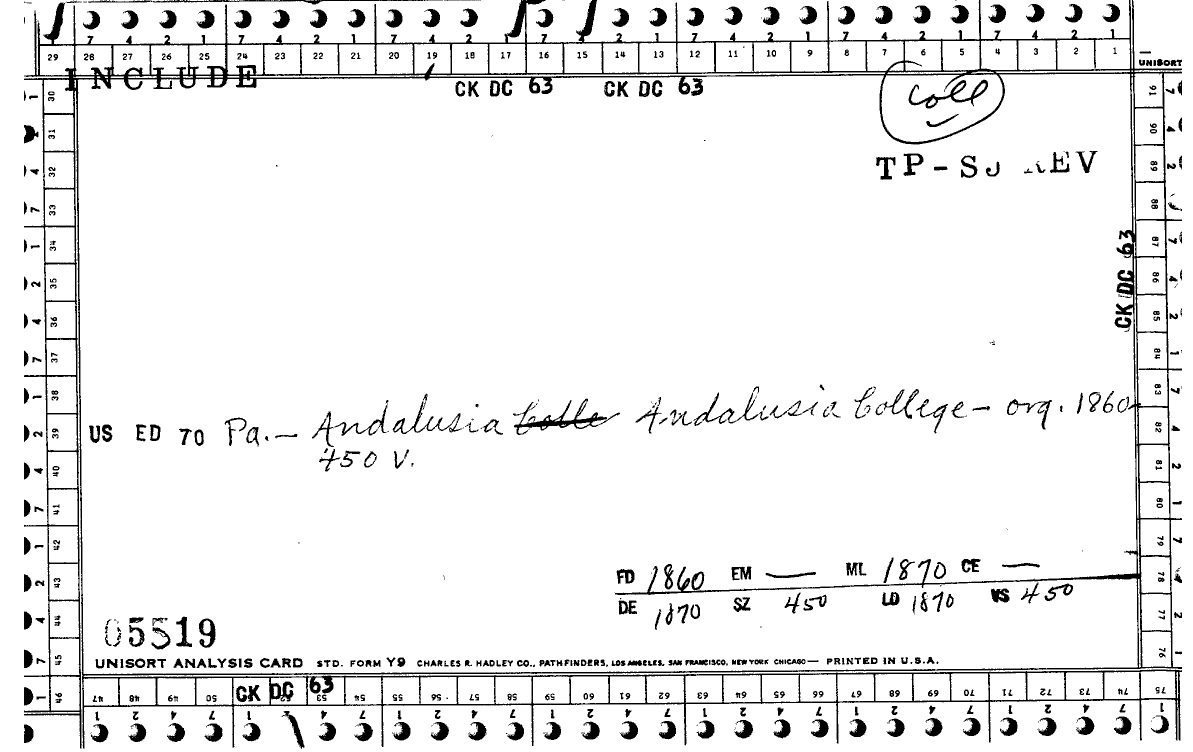 7 4 2 1 7 4 2 1 7 4 2 1 7 4 2 1 7 4 2 1 7 4 2 1 7 4 2 1
29 28 27 26 25 24 23 22 21 20 19 18 17 16 15 14 13 12 11 10 9 8 7 6 5 4 3 2 1
UNISORT
INCLUDE
CK DC 63 CK DC 63
Coll
TP-SJ REV
CK DC 63
US ED 70 Pa.— Andalusia Colle Andalusia College— org. 1860
450 V.
FD 1860 EM — ML 1870 CE —
DE 1870 SZ 450 LD 1870 VS 450
05519
UNISORT ANALYSIS CARD STD. FORM Y9 CHARLES R. HADLEY CO., PATHFINDERS, LOS ANGELES, SAN FRANCISCO, NEW YORK CHICAGO — PRINTED IN U.S.A.
CK DC 63
30 31 32 33 34 35 36 37 38 39 40 41 42 43 44 45 46
47 48 49 50 53 54 55 56 57 58 59 60 61 62 63 64 65 66 67 68 69 70 71 72 73 74 75
91 90 89 88 87 86 85 84 83 82 81 80 79 78 77 76